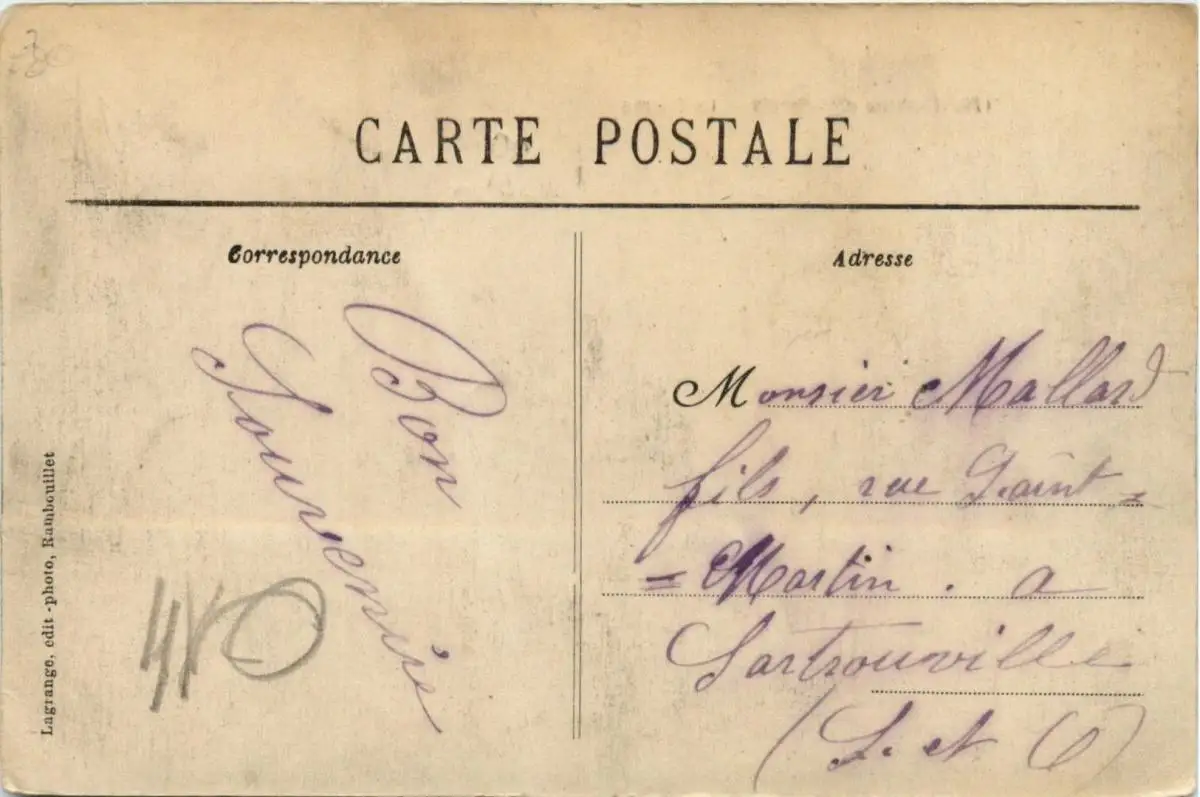 CARTE POSTALE
Correspondance
Adresse
Bon
Souvenir
Monsieur Mallard
fils, rue Saint=
=Martin. a
Sartrouville
(S. et O)
Lagrange, edit-photo, Rambouillet